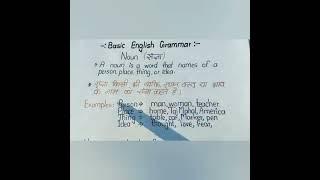 -: Basic English Grammar:-
Noun (संज्ञा)
* A noun is a word that names of a
person, place, thing, or idea.
* संज्ञा किसी भी व्यक्ति, स्थान, वस्तु या भाव
के नाम को संज्ञा कहते हैं।
Examples: Person → man, woman, teacher
Place → home, Taj Mahal, America
Thing → table, car, Marker, pen
Idea → thought, love, fear,